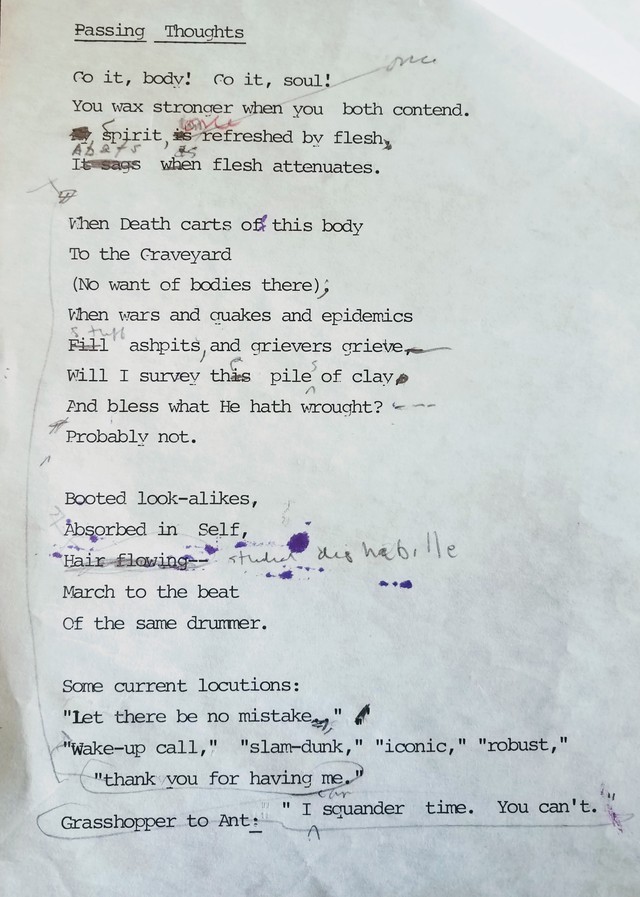 Passing Thoughts
once
Go it, body! Go it, soul!
You wax stronger when you both contend.
once
My spirit, is refreshed by flesh,
Abets as
It sags when flesh attenuates.
When Death carts off this body
To the Graveyard
(No want of bodies there),
When wars and quakes and epidemics
stuff
Fill ashpits, and grievers grieve,
Will I survey this piles of clay
And bless what He hath wrought?
Probably not.
Booted look-alikes,
Absorbed in Self,
Hair flowing-- studied deshabille
March to the beat
Of the same drummer.
Some current locutions:
"Let there be no mistake,"
"Wake-up call," "slam-dunk," "iconic," "robust,"
"thank you for having me."
can
Grasshopper to Ant: " I squander time. You can't."